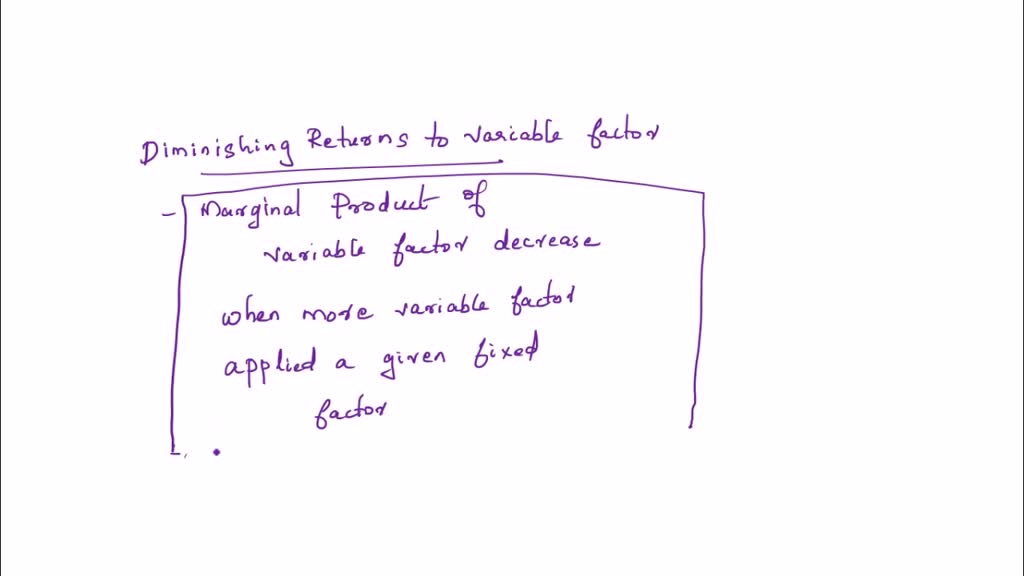 Diminishing Returns to variable factor
- Marginal Product of
variable factor decrease
when more variable factor
applied a given fixed
factor